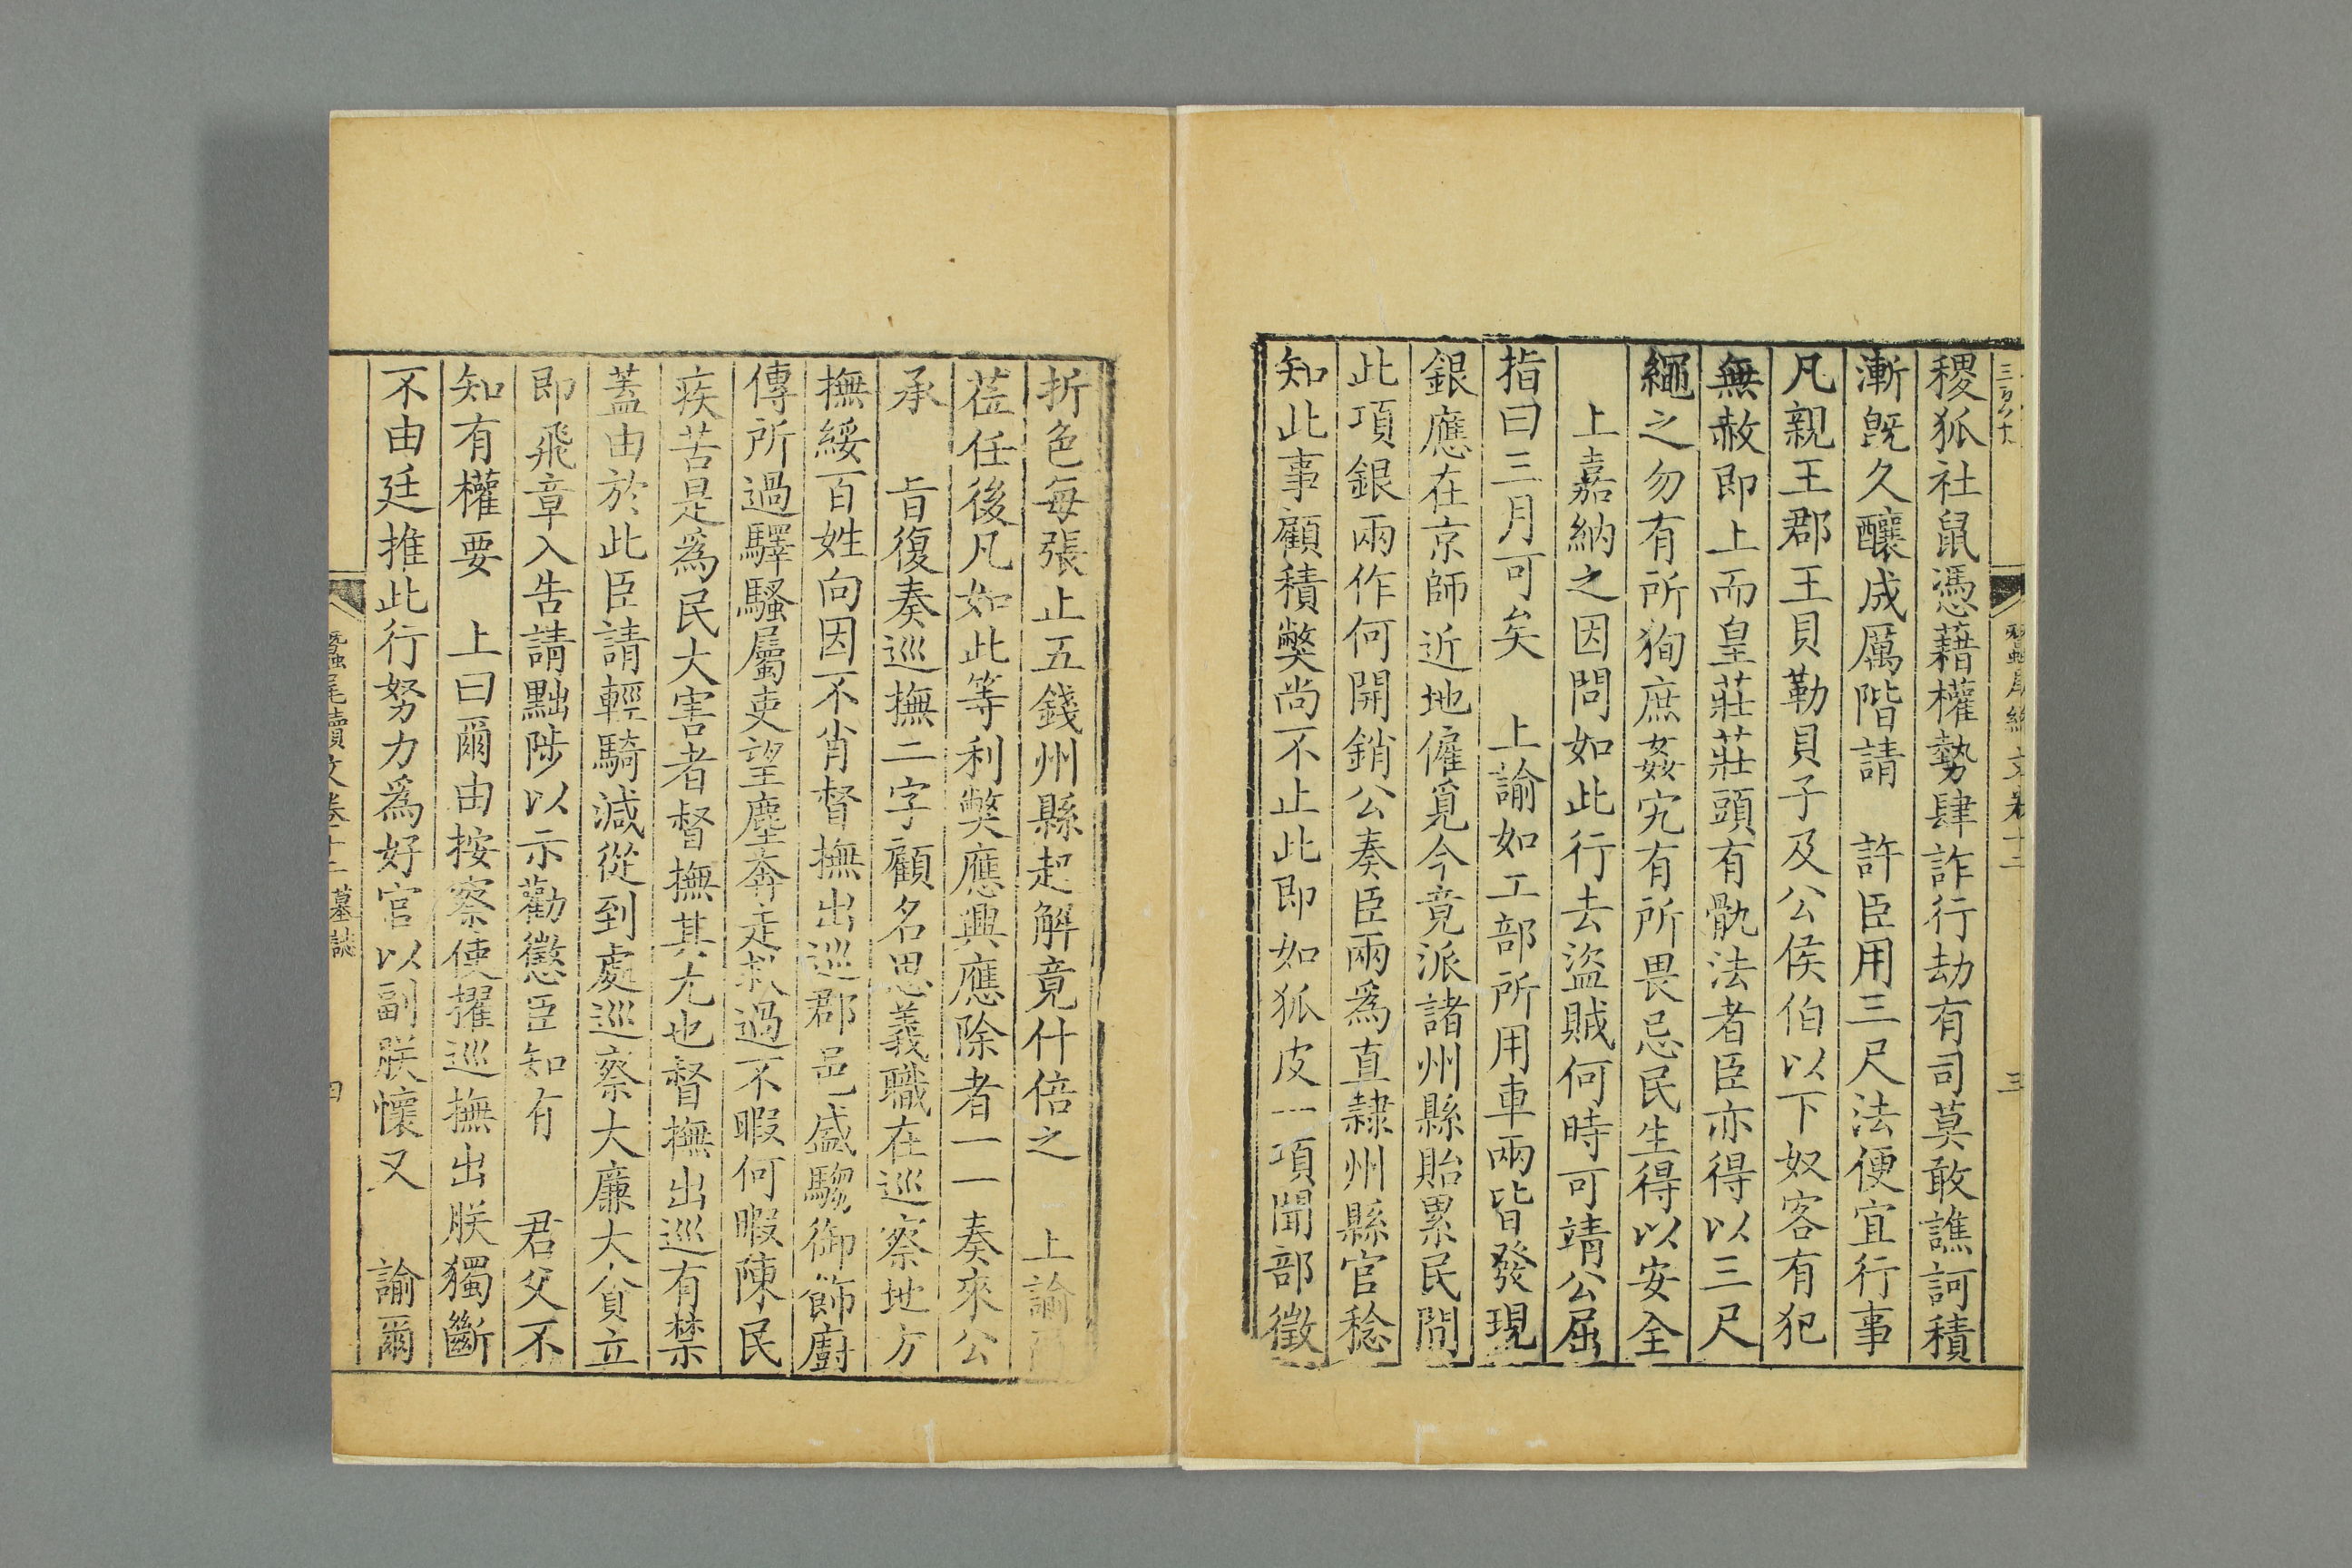 稷狐社鼠憑藉權勢肆詐行劫有司莫敢譙訶積
漸旣久釀成厲階請　許臣用三尺法便宜行事
凡親王郡王貝勒貝子及公侯伯以下奴客有犯
無赦即上而皇莊莊頭有骫法者臣亦得以三尺
繩之勿有所狥庶姦宄有所畏忌民生得以安全
　上嘉納之因問如此行去盜賊何時可靖公屈
指曰三月可矣　上諭如工部所用車兩皆發現
銀應在京師近地僱覓今竟派諸州縣貽累民間
此項銀兩作何開銷公奏臣兩爲直隸州縣官稔
知此事顧積獘尚不止此即如狐皮一項聞部徵
折色每張止五錢州縣起解竟什倍之　上諭
莅任後凡如此等利獘應興應除者一一奏來公
承　旨復奏巡撫二字顧名思義職在巡察地方
撫綏百姓向因不肖督撫出巡郡邑盛騶御飾廚
傳所過驛騷屬吏望塵奔走救過不暇何暇陳民
疾苦是爲民大害者督撫其尤也督撫出巡有禁
蓋由於此臣請輕騎減從到處巡察大廉大貪立
即飛章入告請黜陟以示勸懲臣知有　君父不
知有權要　上曰爾由按察使擢巡撫出朕獨斷
不由廷推此行努力爲好官以副朕懷又　諭爾
蠶尾續文卷十二　墓誌　四